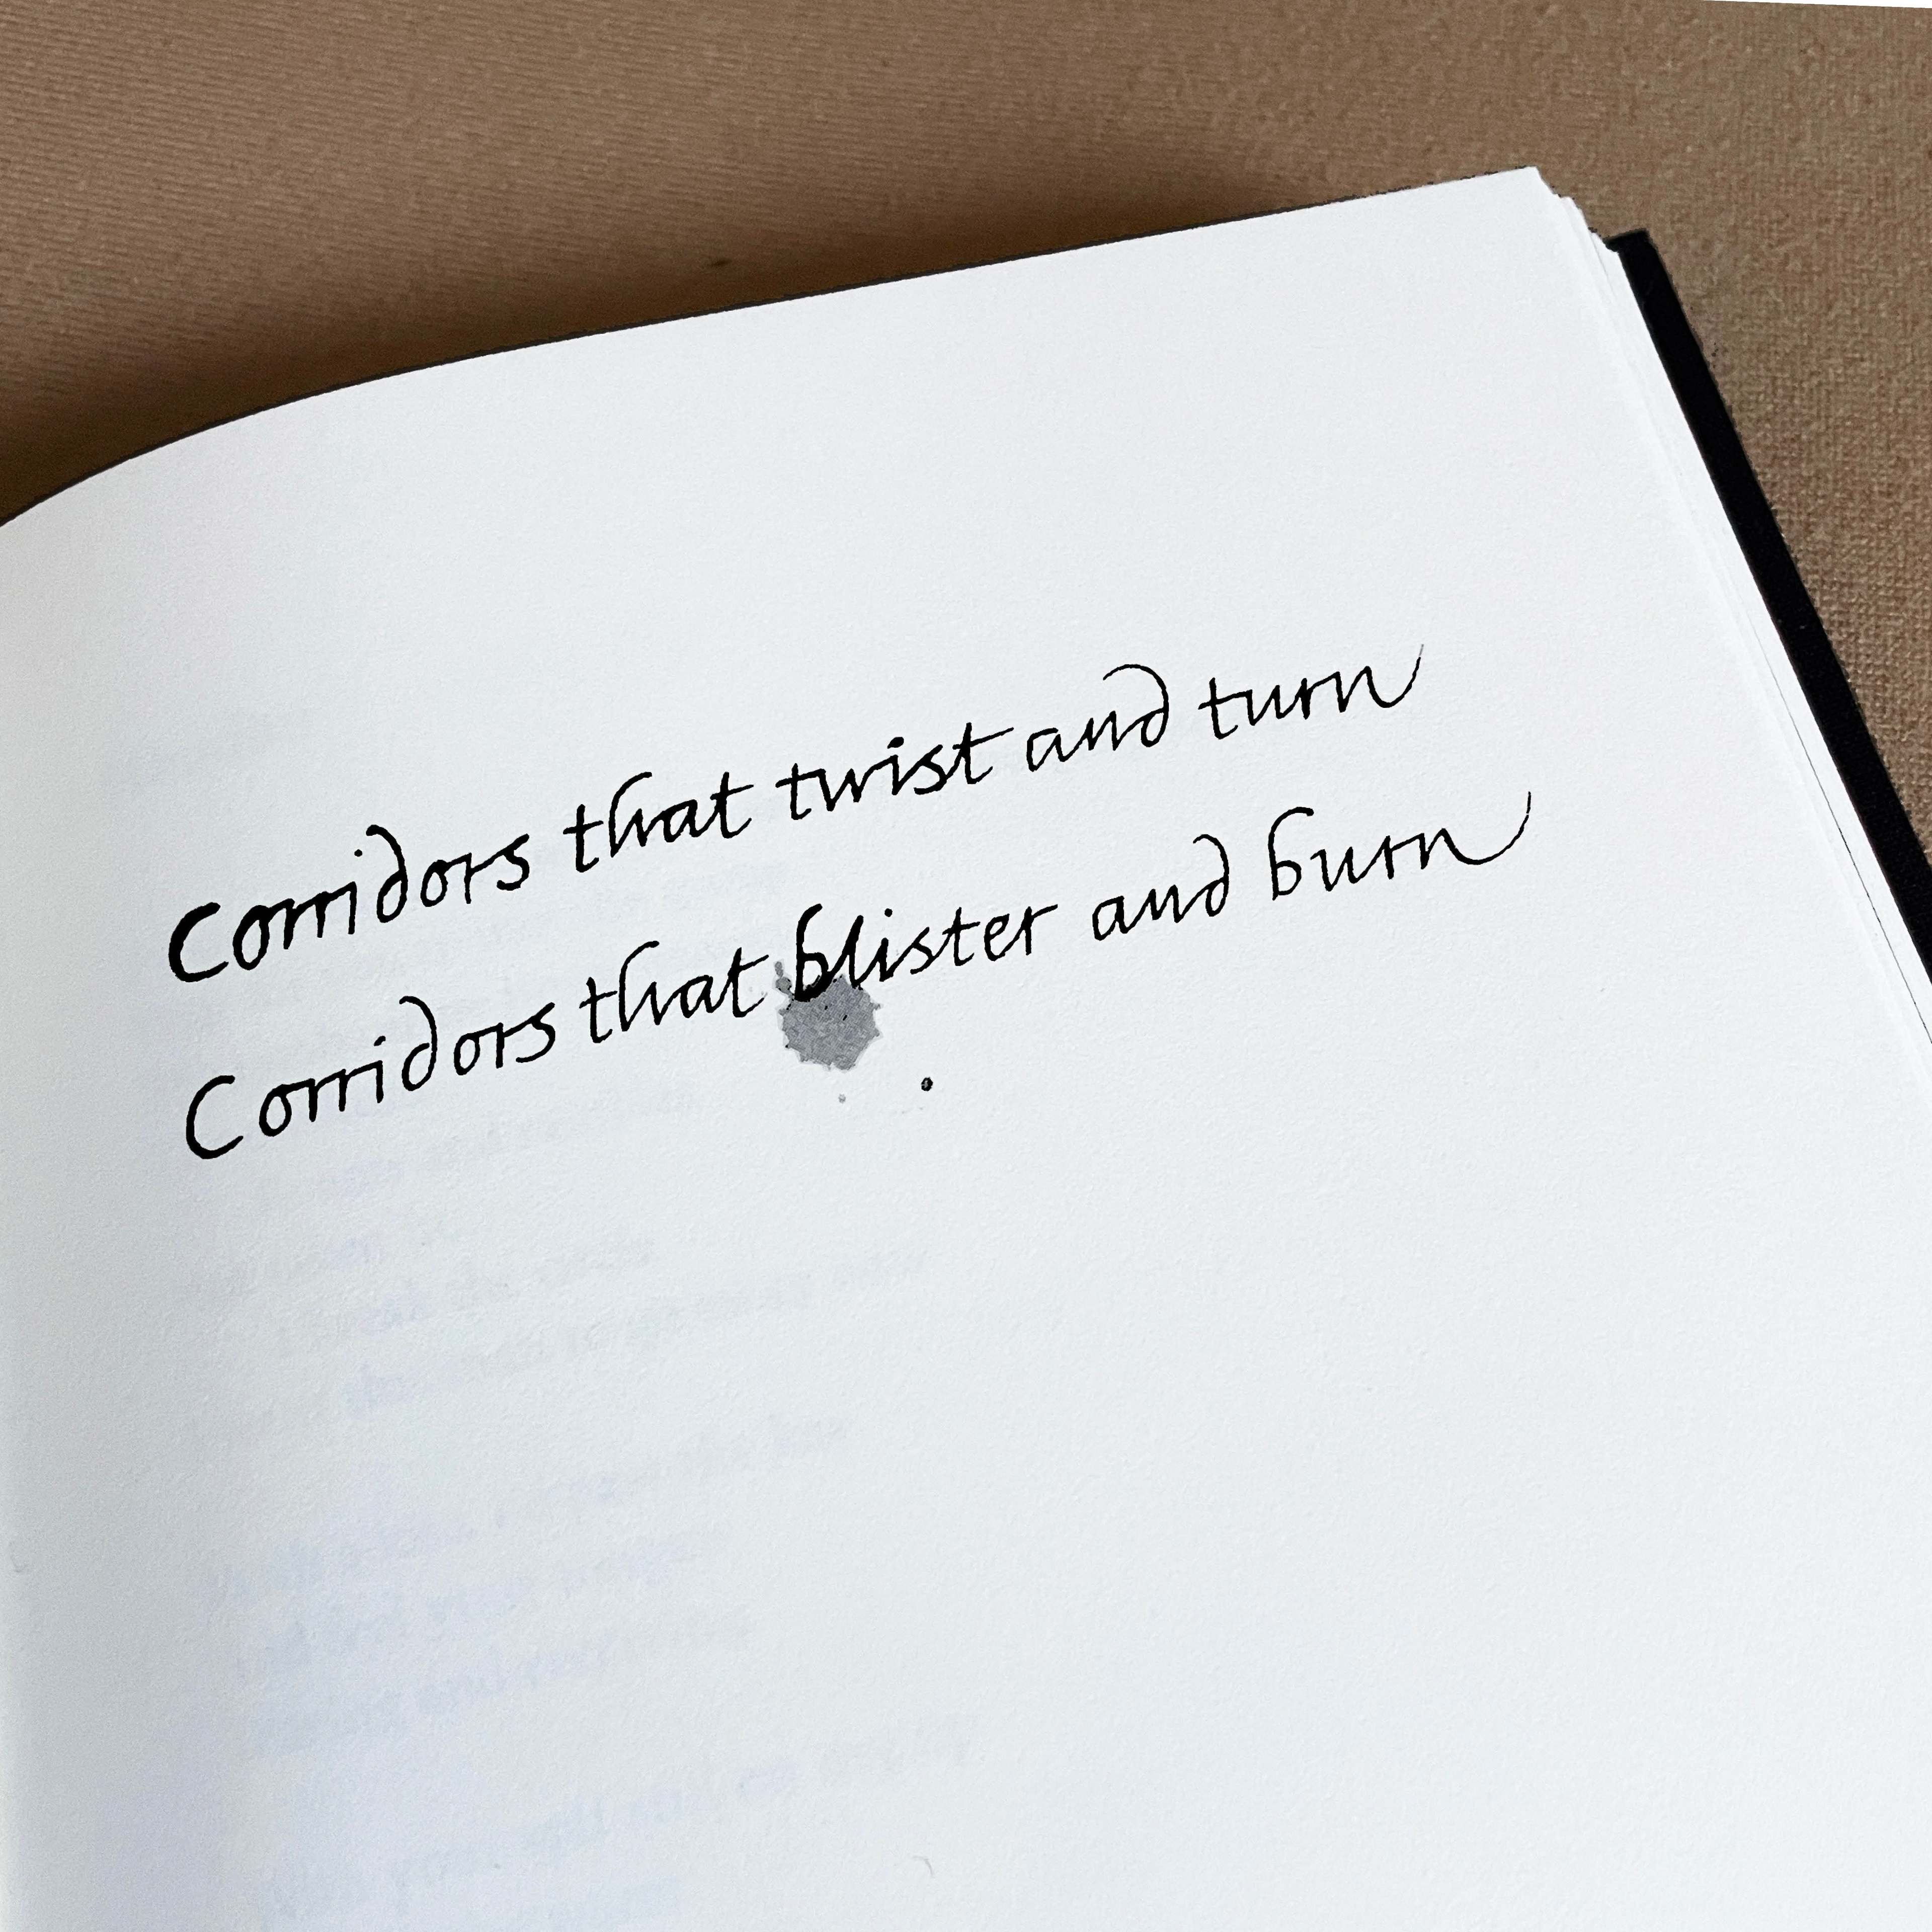 Corridors that twist and turn
Corridors that blister and burn